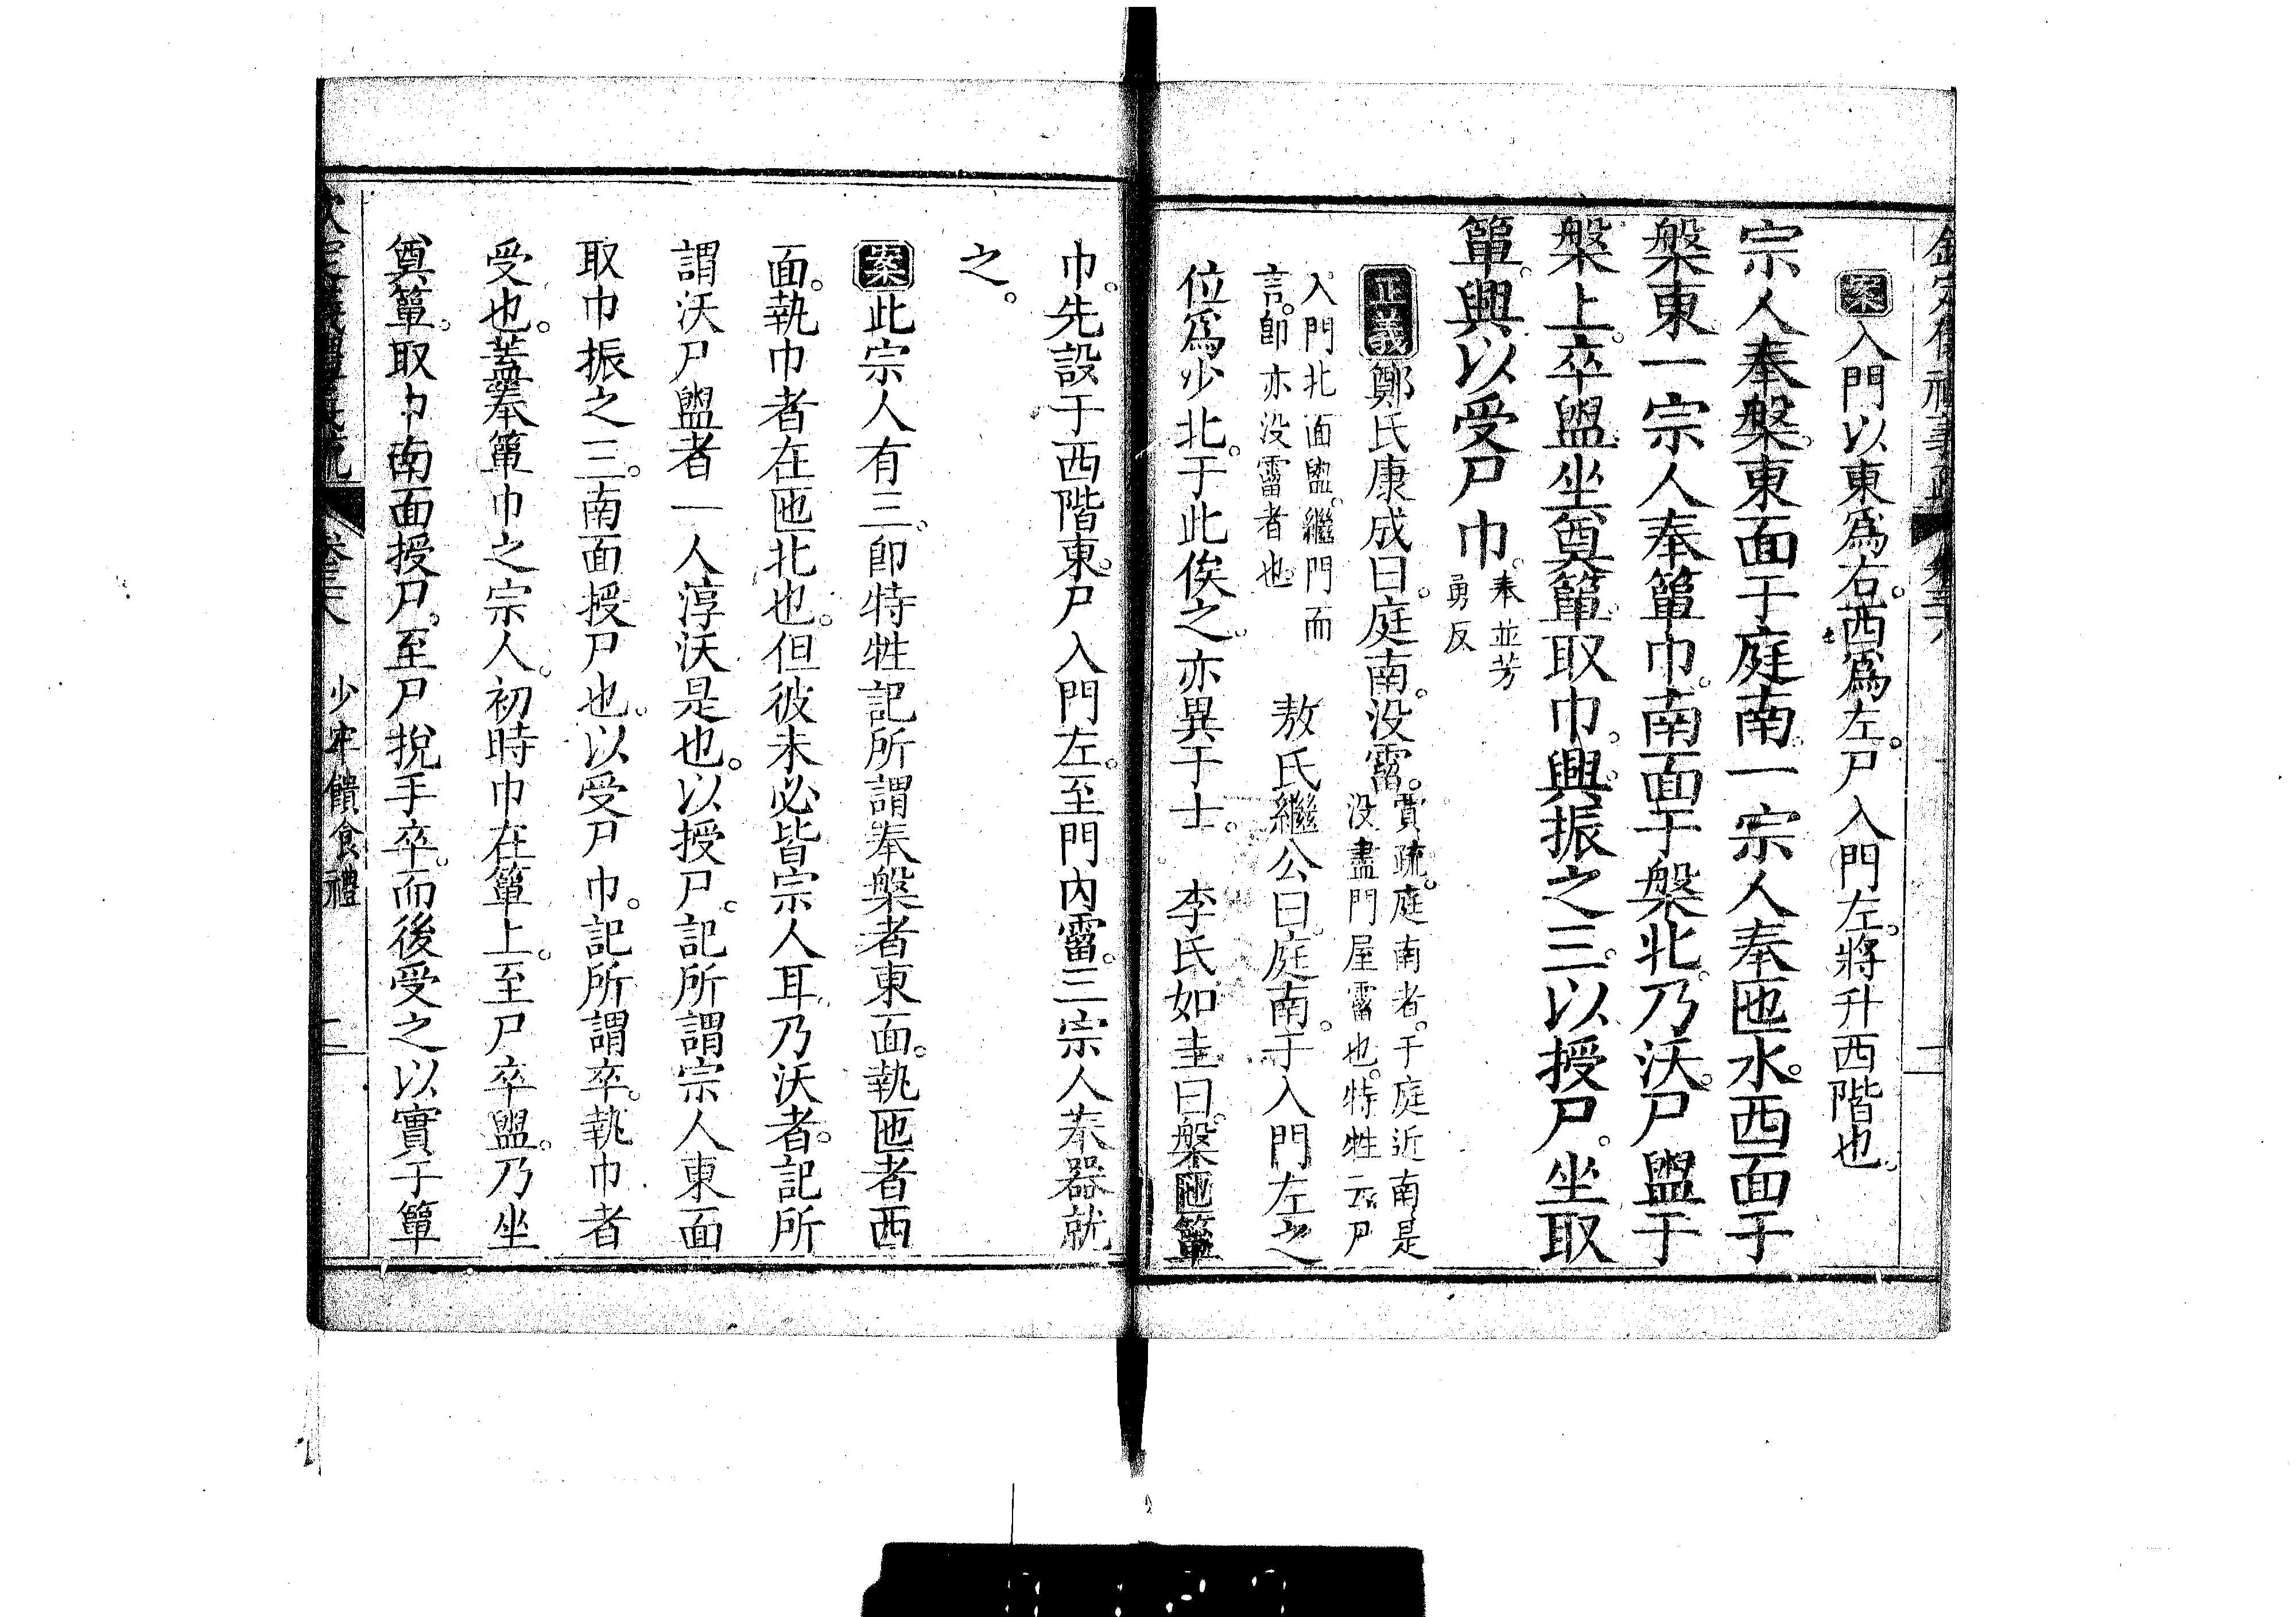 案入門以東爲右。西爲左。尸入門左。將升西階也。
宗人奉槃。東面于庭南。一宗人奉匜水。西面于
槃東。一宗人奉簞巾。南面于槃北。乃沃。尸盥于
槃上。卒盥。坐奠簞。取巾。興。振之三。以授尸。坐取
簞。興。以受尸巾。
奉並芳
勇反
正義鄭氏康成曰。庭南。没霤。
賈疏。庭南者。于庭近南。是
没盡門屋霤也。特牲云。尸
入門北面盥。繼門而
言。卽亦没霤者也。
敖氏繼公曰。庭南。于入門左之
位爲少北。于此俟之。亦異于士。　李氏如圭曰。槃匜簞
巾。先設于西階東。尸入門左。至門内霤。三宗人奉器就
之。
案此宗人有三。卽特牲記所謂奉槃者東面。執匜者西
面。執巾者在匜北也。但彼未必皆宗人耳。乃沃者。記所
謂沃尸盥者一人淳沃是也。以授尸。記所謂宗人東面
取巾振之三。南面授尸也。以受尸巾。記所謂卒。執巾者
受也。蓋奉簞巾之宗人。初時巾在簞上。至尸卒盥。乃坐
奠簞。取巾南面授尸。至尸挩手卒。而後受之以實于簞
少牢饋食禮